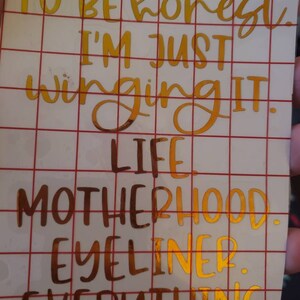 TO BE honest.
I'M JUST
winging IT.
LIFE.
MOTHERHOOD.
EYELINER.
EVERYTHING.